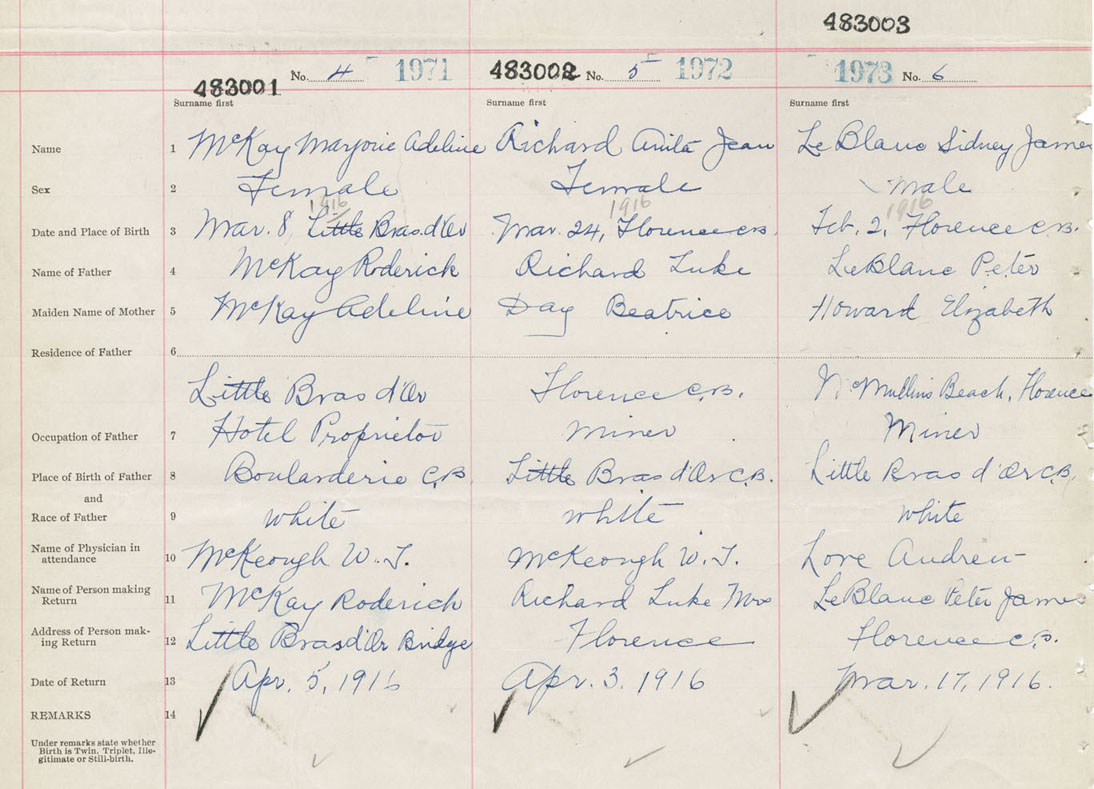 483003
483001 No. 4 1971 483002 No. 5 1972 1973 No. 6
Surname first Surname first Surname first
Name 1 McKay Marjorie Adeline Richard Anita Jean LeBlanc Sidney James
Sex 2 Female Female Male
1916 1916 1916
Date and Place of Birth 3 Mar. 8, Little Bras d'Or Mar. 24, Florence C.B. Feb. 2, Florence C.B.
Name of Father 4 McKay Roderick Richard Luke LeBlanc Peter
Maiden Name of Mother 5 McKay Adeline Day Beatrice Howard Elizabeth
Residence of Father 6
Little Bras d'Or Florence C.B. McMullins Beach, Florence
Occupation of Father 7 Hotel Proprietor Miner Miner
Place of Birth of Father 8 Boularderie C.B. Little Bras d'Or C.B. Little Bras d'Or C.B.
and
Race of Father 9 white white white
Name of Physician in
attendance 10 McKeough W. J. McKeough W. J. Love Andrew
Name of Person making
Return 11 McKay Roderick Richard Luke Mrs LeBlanc Peter James
Address of Person mak-
ing Return 12 Little Bras d'Or Bridge Florence Florence C.B.
Date of Return 13 Apr. 5, 1916 Apr. 3. 1916 Mar. 17, 1916.
REMARKS 14
Under remarks state whether
Birth is Twin, Triplet, Ille-
gitimate or Still-birth.